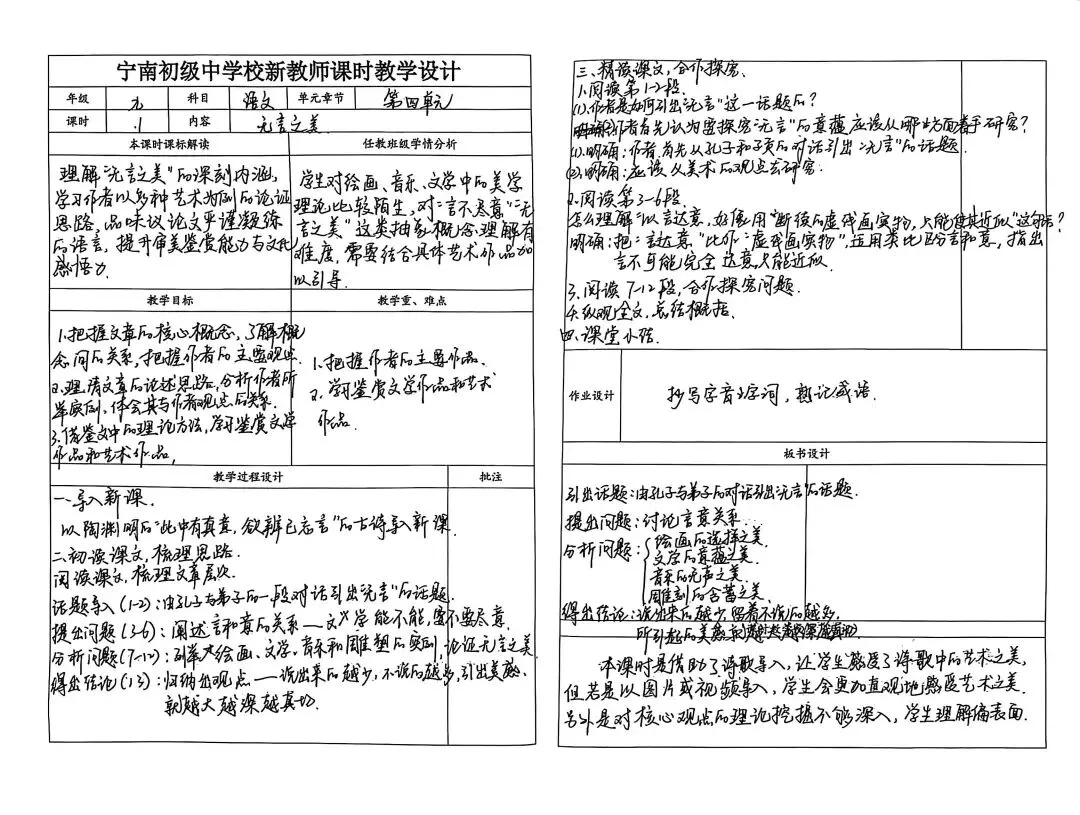 宁南初级中学校新教师课时教学设计
年级 九 科目 语文 单元章节 第四单元
课时 1 内容 无言之美
本课时课标解读 任教班级学情分析
理解“无言之美”的深刻内涵,
学习作者以多种艺术为例的论证
思路,品味议论文严谨凝练
的语言,提升审美鉴赏能力与文化
感悟力.
学生对绘画、音乐、文学中的美学
理论比较陌生,对“言不尽意”“无
言之美”这类抽象概念理解有
难度,需要结合具体艺术作品加
以引导.
教学目标 教学重、难点
1.把握文章的核心概念,了解概
念间的关系,把握作者的主要观点.
2.理清文章的论述思路,分析作者所
举实例,体会其与作者观点的关系.
3.借鉴文中的理论方法,学习鉴赏文学
作品和艺术作品.
1.把握作者的主要作品.
2.学习鉴赏文学作品和艺术
作品.
教学过程设计 批注
一、导入新课.
以陶渊明的“此中有真意,欲辨已忘言”的古诗导入新课.
二、初读课文,梳理思路.
阅读课文,梳理文章层次.
话题导入(1-2):由孔子与弟子的一段对话引出“无言”的话题.
提出问题(3-6):阐述言和意的关系——文学能不能,要不要尽意.
分析问题(7-12):列举绘画、文学、音乐和雕塑的实例,论证无言之美.
得出结论(13):归纳出观点——说出来的越少,不说的越多,引出美感、
就越大越深越真切.
三、精读课文,合作探究.
1.阅读第1-2段.
(1).作者是如何引出“无言”这一话题的?
作者首先认为要探究“无言”的意蕴应该从哪些方面着手研究?
(1).明确:作者首先从孔子和子贡的对话引出“无言”的话题.
(2).明确:应该从美术的观点去研究.
2.阅读第3-6段.
怎么理解“以言达意,好像用“断续的虚线画实物,只能使其近似”这句话?
明确:把“言达意”比作“虚线画实物”,运用类比区分言和意,指出
言不可能完全达意,只能近似.
3.阅读7-12段,合作探究问题.
4.纵观全文,总结概括.
四、课堂小结.
作业设计 抄写字音字词,熟记成语.
板书设计
引出话题:由孔子与弟子的对话引出“无言”的话题.
提出问题:讨论言意关系.
分析问题:绘画的选择之美.
文学的意蕴之美.
音乐的无声之美.
雕刻的含蓄之美.
得出结论:说出来的越少,留着不说的越多,
所引起的美感
本课时是借助了诗歌导入,让学生感受了诗歌中的艺术之美,
但若是以图片或视频导入,学生会更加直观地感受艺术之美.
另外是对核心观点的理论挖掘不够深入,学生理解偏表面.